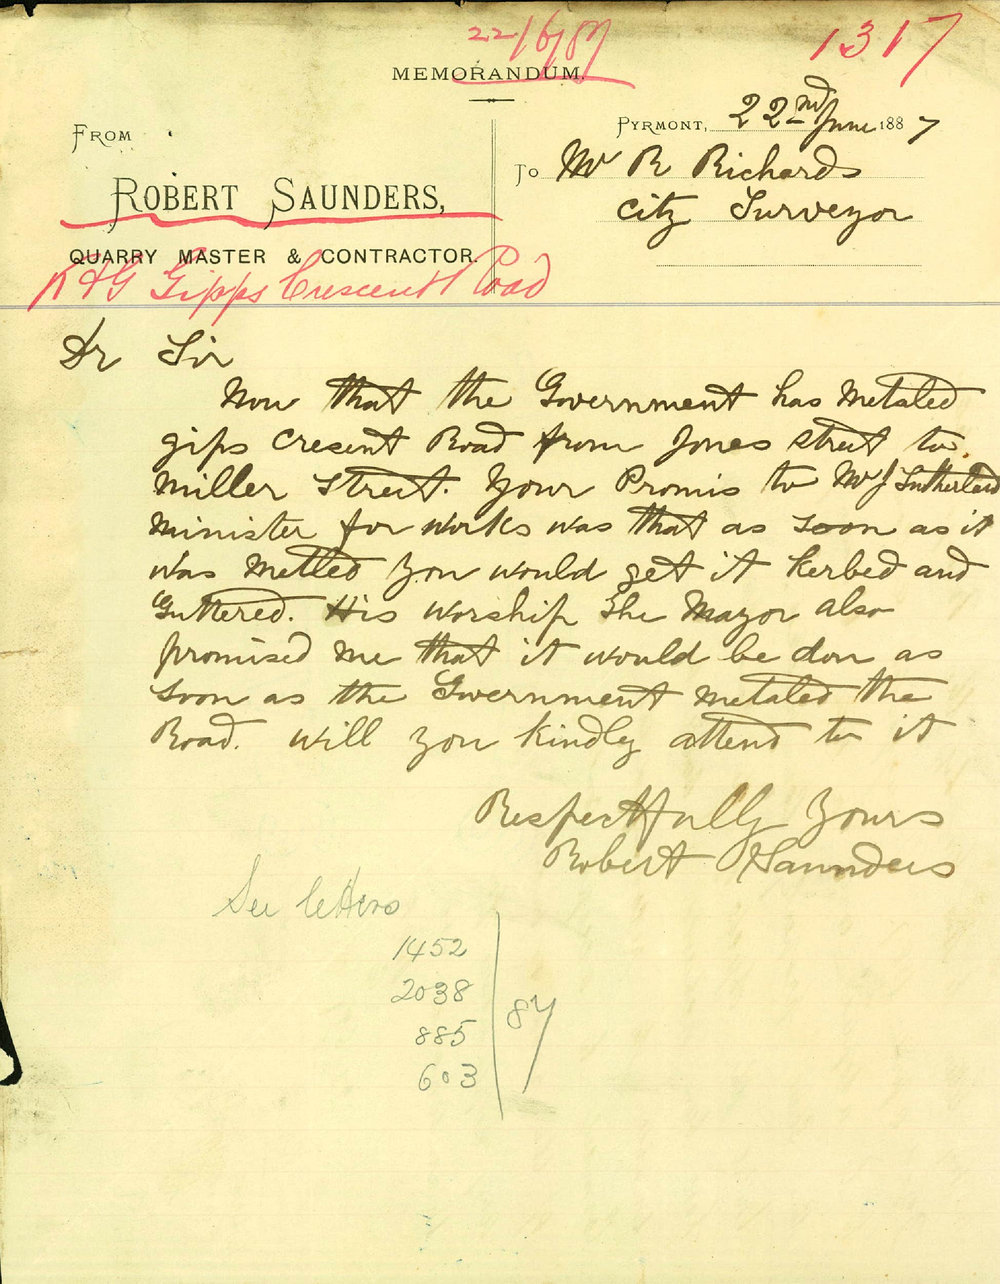 22/6/87
1317
MEMORANDUM.
FROM
PYRMONT, 22nd June 1887
ROBERT SAUNDERS,
To Mr R Richards
City Surveyor
QUARRY MASTER & CONTRACTOR.
K & G Gipps Crescent Road
Dr Sir
Now that the Government has Metaled
gips Cresent Road from Jones street to
Miller Street. Your Promis to Mr J Sutherland
Minister for Works was that as soon as it
was Metled you would get it Kerbed and
Guttered. His worship The Mayor also
promised me that it would be don as
soon as the Government metaled the
Road. will you Kindly attend to it
Respectfully Yours
Robert Saunders
See letters
1452
2038
885
603
87